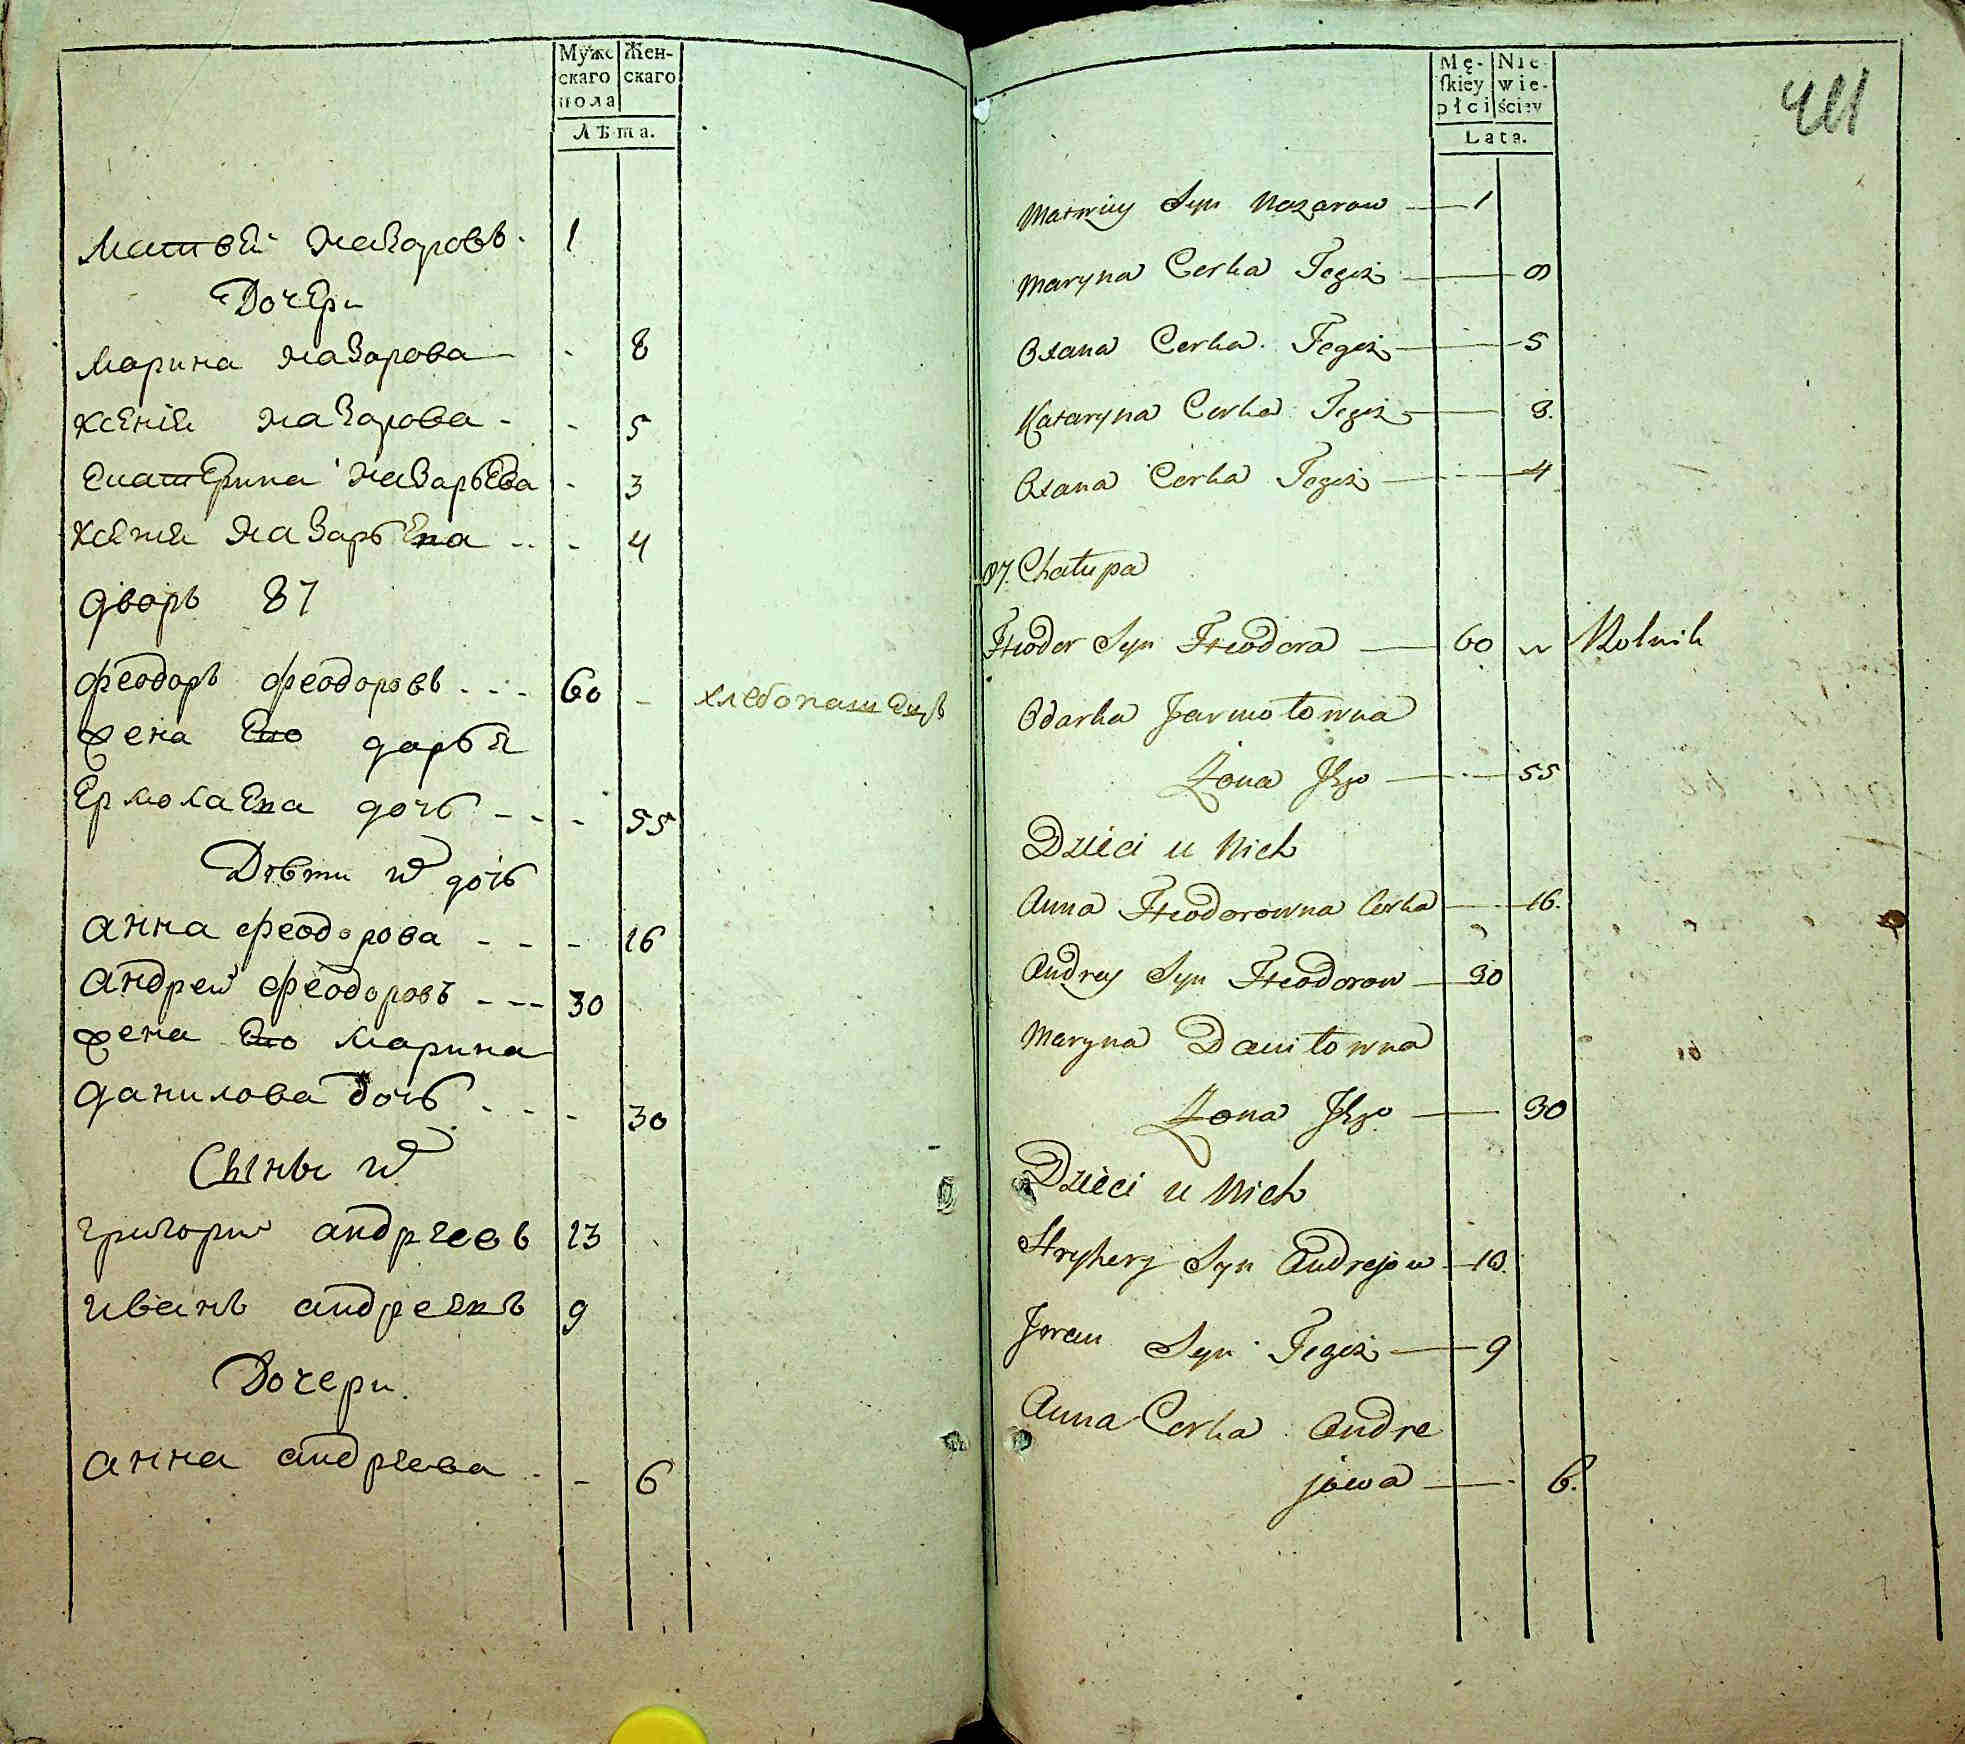 Мужс Жен-
скаго скаго
пола
Лѣта.
Матвей Назаровъ. 1
Дочери
Марина Назарова - 8
Ксенія Назарова - - 5
Екатерина Назарьева - 3
Ксенія Назарьева - - 4
дворъ 87
Феодоръ Феодоровъ - - - 60 - хлебопашецъ
жена Его дарья
Ермолаева дочь - - - 55
Дѣти ихъ дочь
анна Феодорова - - - 16
андрей Феодоровъ - - - 30
жена Его Марина
данилова дочь - - - 30
Сыны их
григории андреевъ 13
иванъ андреевъ 9
Дочери.
анна андреева - - 6
Mę- Nie-
skiey wie-
płci ściey
Lata.
411
Matwiey Syn Nazarow — 1
Maryna Corka Tegoż — 8
Oxana Corka Tegoż — 5
Kataryna Corka Tegoż — 3.
Oxana Corka Tegoż — 4
87. Chałupa
Fteodor Syn Fteodora — 60 " Rolnik
Odarka Jarmołowna
Żona Jego — 55
Dzieci u Nich
Anna Fteodorowna Corka — 16.
Andrey Syn Fteodorow — 30
Maryna Daniłowna
Żona Jego — 30
Dzieci u Nich
Syn Andrejow
Jwan Syn Tegoż — 9
Anna Corka Andre
jowa — 6.